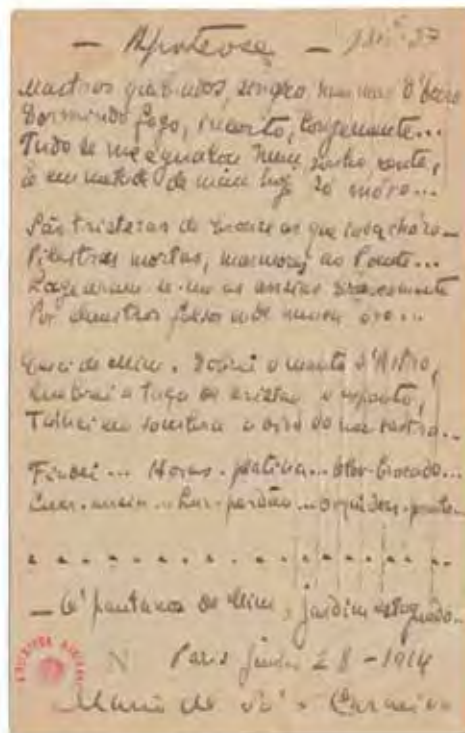 — Apoteose —
Mastros quebrados, singro num mar d'Ouro
Dormindo fogo, incerto, longemente...
Tudo se me egualou num sonho rente,
E em metade de mim hoje só móro...
São tristezas de bronze as que inda chóro—
Pilastras mortas, marmores ao Poente...
Lagearam-se-me as ansias brancamente
Por claustros falsos onde nunca óro...
Desci de Mim. Dobrei o manto d'Astro,
Quebrei a taça de cristal e espanto,
Talhei em sombra o oiro do meu rastro...
Findei... Horas-platina... Olor-brocado...
Luar-ansia... Luz-perdão... Orquideas-pranto...
. . . . . . . . . . . . . . . .
— Ó pantanos de Mim, jardim estagnado...
Paris junho 28 - 1914
Mario de Sá-Carneiro